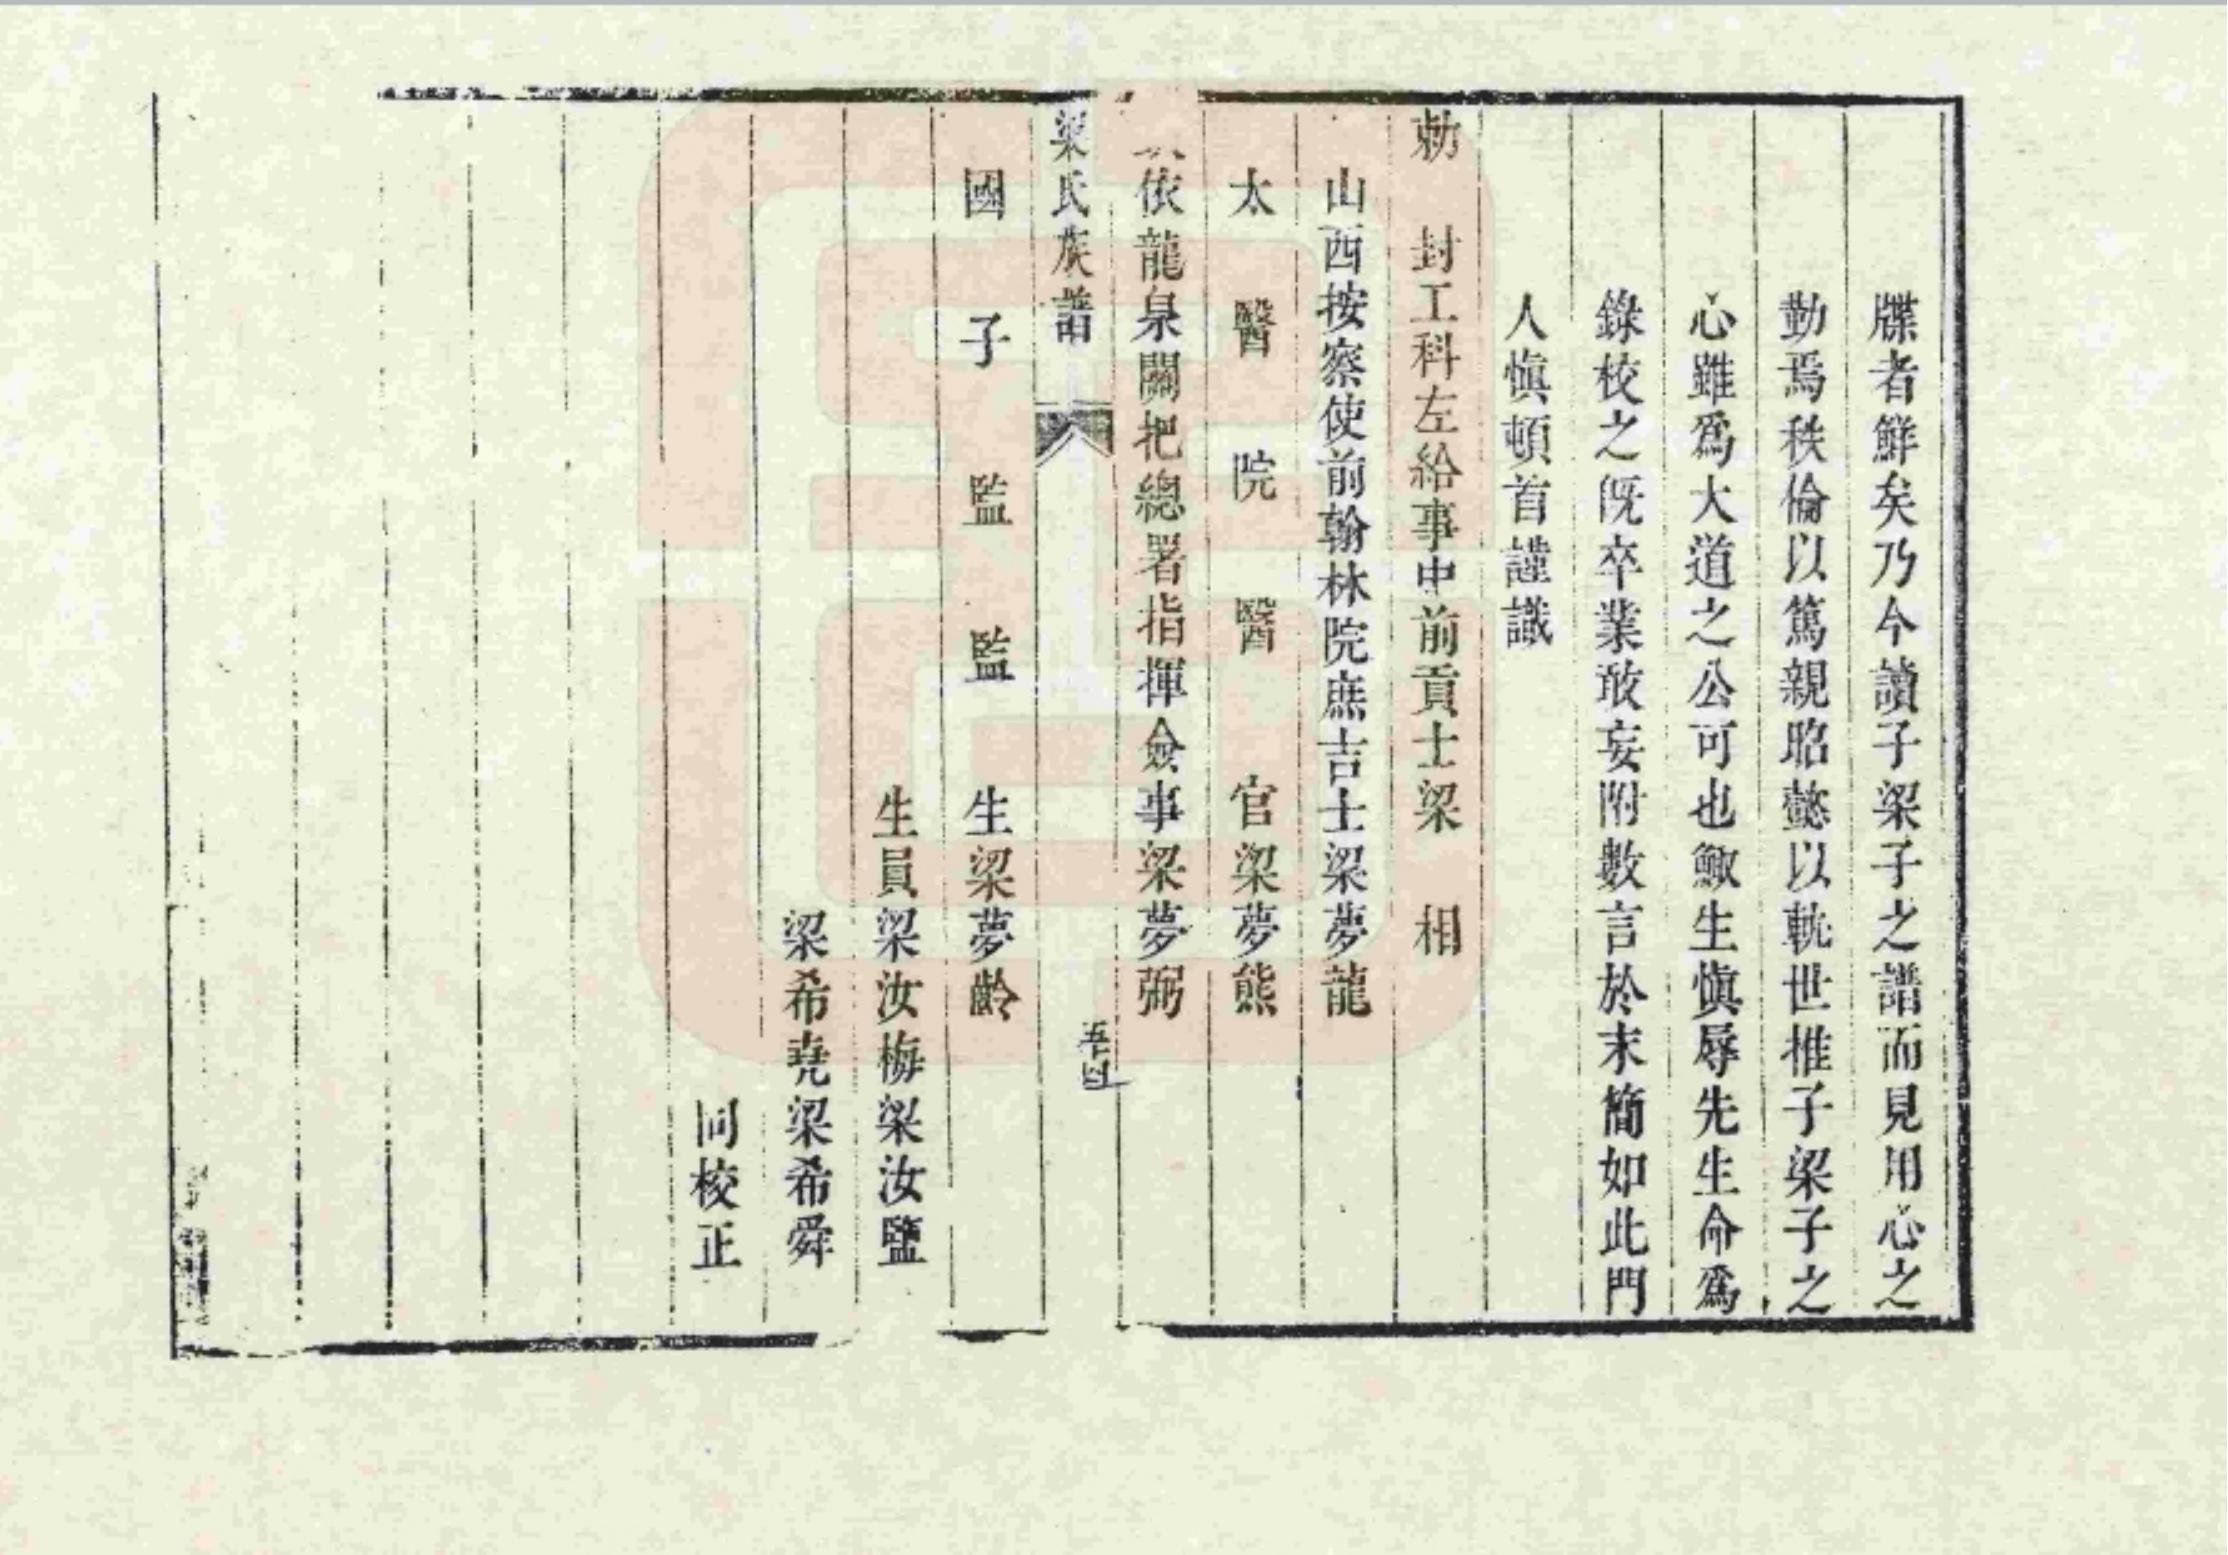 牒者鮮矣乃今讀子梁子之譜而見用心之
勤焉秩倫以篤親昭懿以軌世推子梁子之
心雖爲大道之公可也鯫生愼辱先生命爲
錄校之旣卒業敢妄附數言於末簡如此門
人愼頓首謹識
勅 封工科左給事中前貢士梁 相
山西按察使前翰林院庶吉士梁夢龍
太醫院醫官梁夢熊
依龍泉關把總署指揮僉事梁夢弼
梁氏族譜
五四
國子監監生梁夢齡
生員梁汝梅梁汝鹽
梁希堯梁希舜
同校正